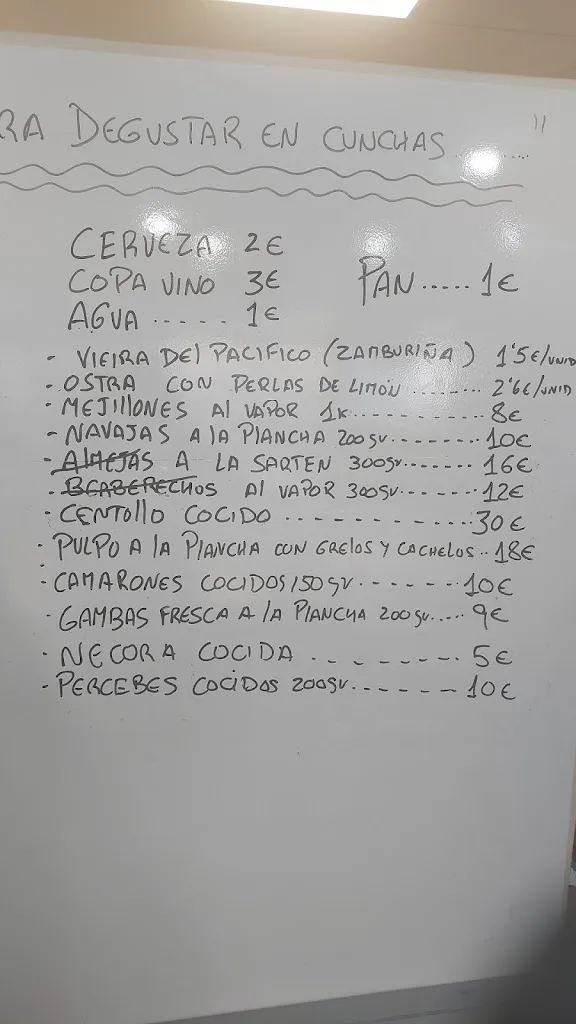 RA DEGUSTAR EN CUNCHAS ......... "
CERVEZA 2€
COPA VINO 3€
PAN ..... 1€
AGUA ..... 1€
- VIEIRA DEL PACIFICO (ZAMBURIÑA) 1'5€/UNID
- OSTRA CON PERLAS DE LIMÓN ........ 2'6€/UNID
- MEJILLONES AL VAPOR 1K ............ 8€
- NAVAJAS A LA PLANCHA 200gr ........ 10€
- ALMEJAS A LA SARTEN 300gr ....... 16€
- BERBERECHOS AL VAPOR 300gr ...... 12€
- CENTOLLO COCIDO ............ 30€
- PULPO A LA PLANCHA CON GRELOS Y CACHELOS .. 18€
- CAMARONES COCIDOS 150gr ....... 10€
- GAMBAS FRESCA A LA PLANCHA 200gr ..... 9€
- NECORA COCIDA ........ 5€
- PERCEBES COCIDOS 200gr ....... 10€